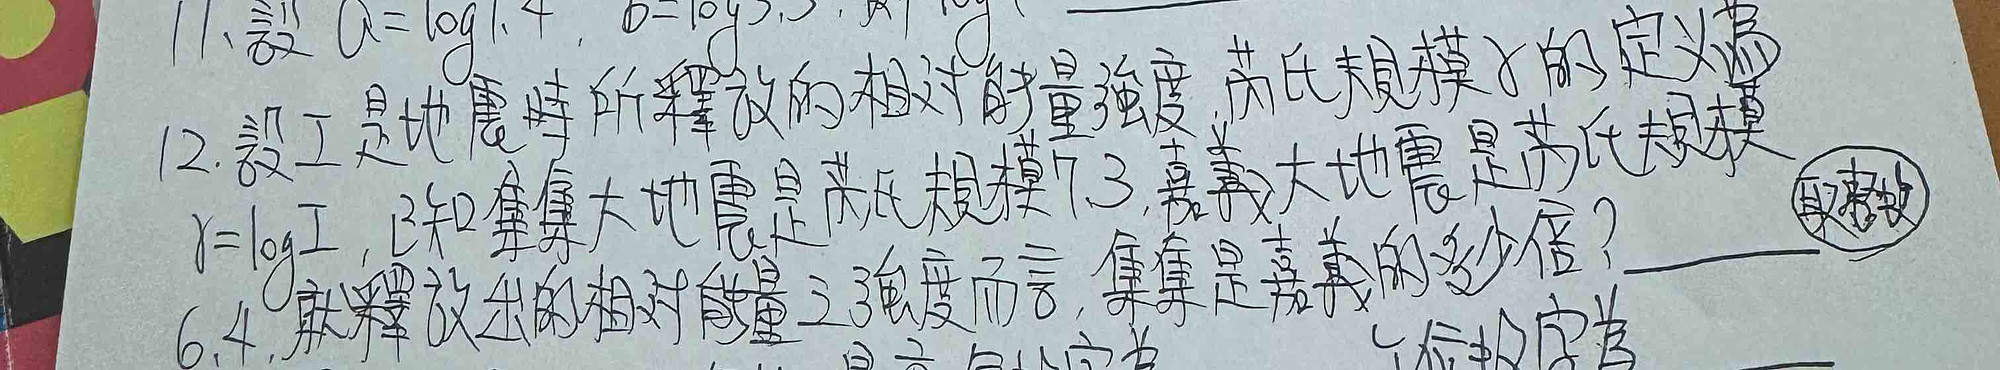 11. 設 a=log1.4, b=log3.5, 則 log
12. 設I是地震時所釋放的相對能量強度,芮氏規模r的定義為
r=logI,已知集集大地震是芮氏規模7.3,嘉義大地震是芮氏規模
6.4,就釋放出的相對能量之強度而言,集集是嘉義的多少倍?
取整數